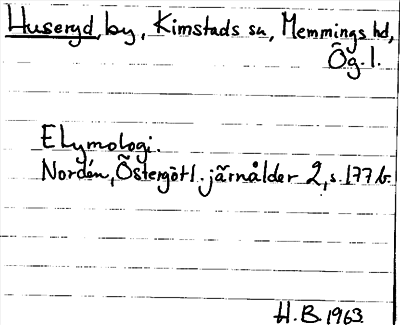 Huseryd, by, Kimstads sn, Memmings hd,
Ög. l.
Etymologi.
Nordén, Östergötl. järnålder 2, s. 177 b.
H. B. 1963.